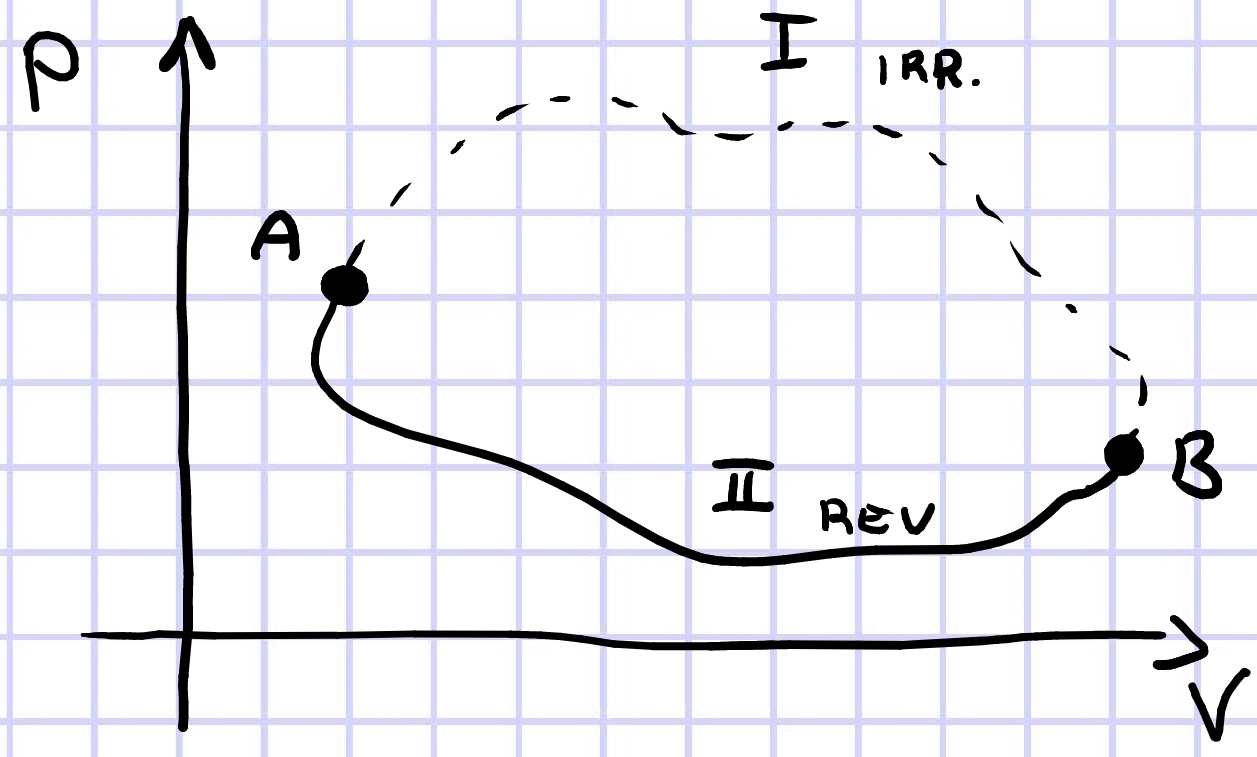 P
I IRR.
A
B
II REV
V